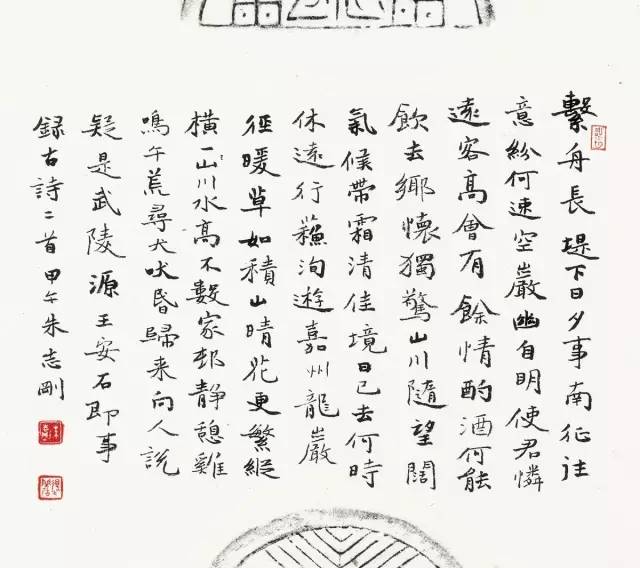 繫舟長堤下日夕事南征往
意紛何速空巖幽自明使君憐
遠客高會有餘情酌酒何能
飲去鄉懷獨驚山川隨望闊
氣候帶霜清佳境日已去何時
休遠行蘇洵遊嘉州龍巖
徑暖草如積山晴花更繁縱
橫一山川水高不數家邨靜憩雞
鳴午荒尋犬吠昏歸來向人說
疑是武陵源王安石即事
録古詩二首甲午朱志剛